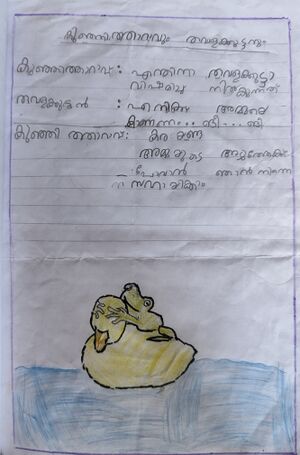 കുഞ്ഞിത്താറാവും തവളക്കുട്ടനും
കുഞ്ഞിത്താറാവ് : എന്തിനാ തവളക്കുട്ടാ
വിഷമിച്ച് നിൽക്കുന്നത്
തവളക്കുട്ടൻ : എനിക്ക് അമ്മയെ
കാണണം... ങീ... ങീ
കുഞ്ഞി ത്താറാവ് : കര
അമ്മ യുടെ അടുത്തേക്ക്
പോവാൻ ഞാൻ നിന്നെ
സഹാ യിക്കാം